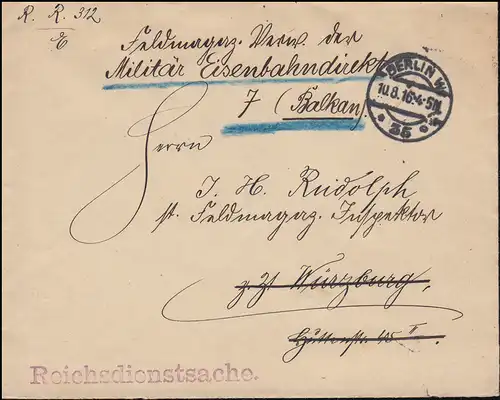 R. R. 312
E
Feldmagaz. Verw. der
Militär Eisenbahndirekt.
7 (Balkan)
BERLIN W
10.8.16.4-5N.
* 35 *
Herrn
J. H. Rudolph
st. Feldmagaz. Inspektor
z. Zt. Würzburg,
Huttenstr. 45 II
Reichsdienstsache.